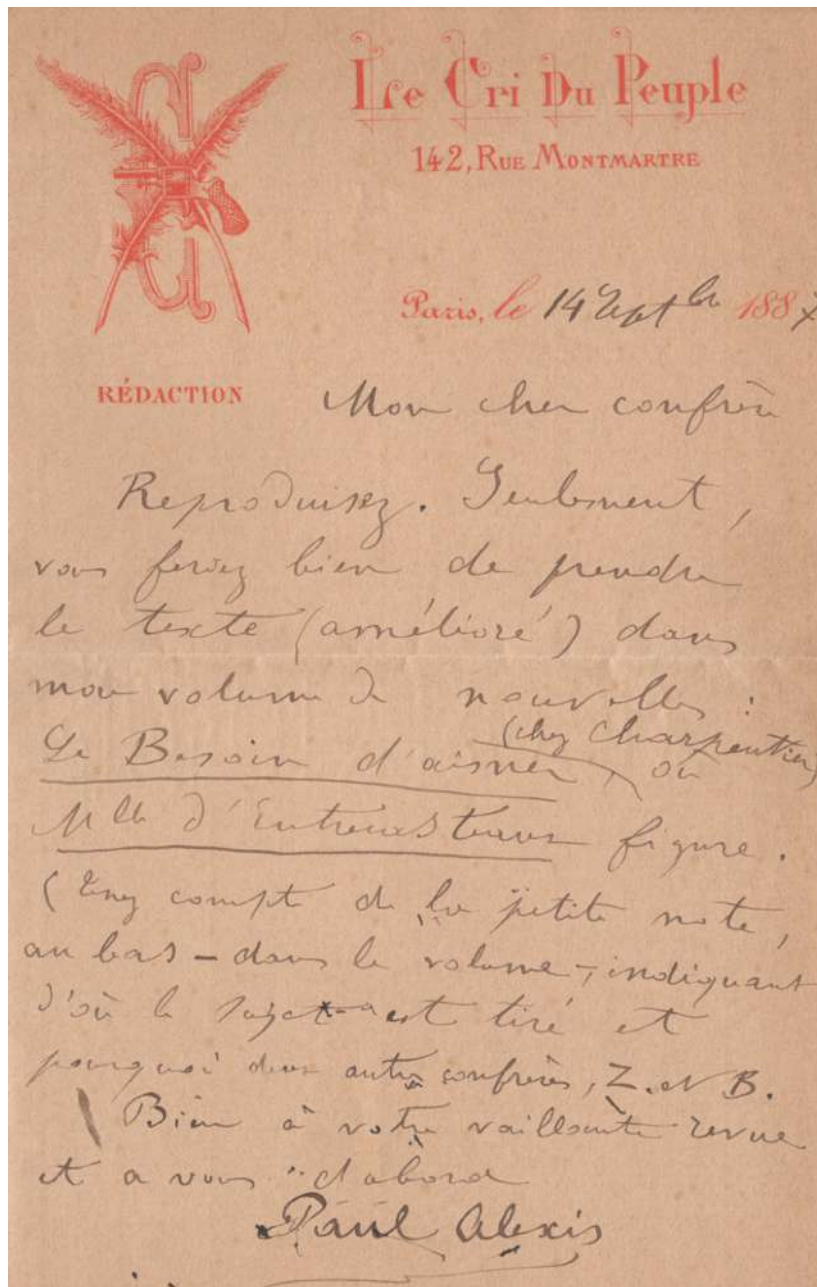 Le Cri Du Peuple
142, Rue Montmartre
Paris, le 14 Septbre 1887
RÉDACTION
Mon cher confrère
Reproduisez. Seulement,
vous feriez bien de prendre
le texte (amélioré) dans
mon volume de nouvelles :
(chez Charpentier)
Le Besoin d'aimer, où
Mlle d'Entrecasteaux figure.
(Tenez compte de la petite note,
au bas – dans le volume –, indiquant
d'où le sujet est tiré et
pourquoi deux autres confrères, Z. et B.
Bien à votre vaillante revue
et a vous d'abord
Paul Alexis